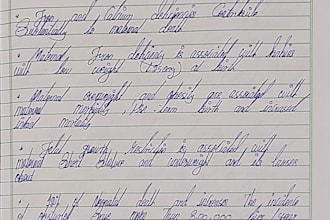 • Iron and Calcium deficiencies Contribute
Substantially to maternal death
• Maternal Iron deficiency is associated with babies
with low weight ( ) at birth
• Maternal overweight and obesity are associated with
maternal morbidity, Pre term birth and increased
infant mortality
• Fetal growth restriction is associated with
maternal Short Stature and underweight and its causes
• 20% of death and increases The
more Than 800,000